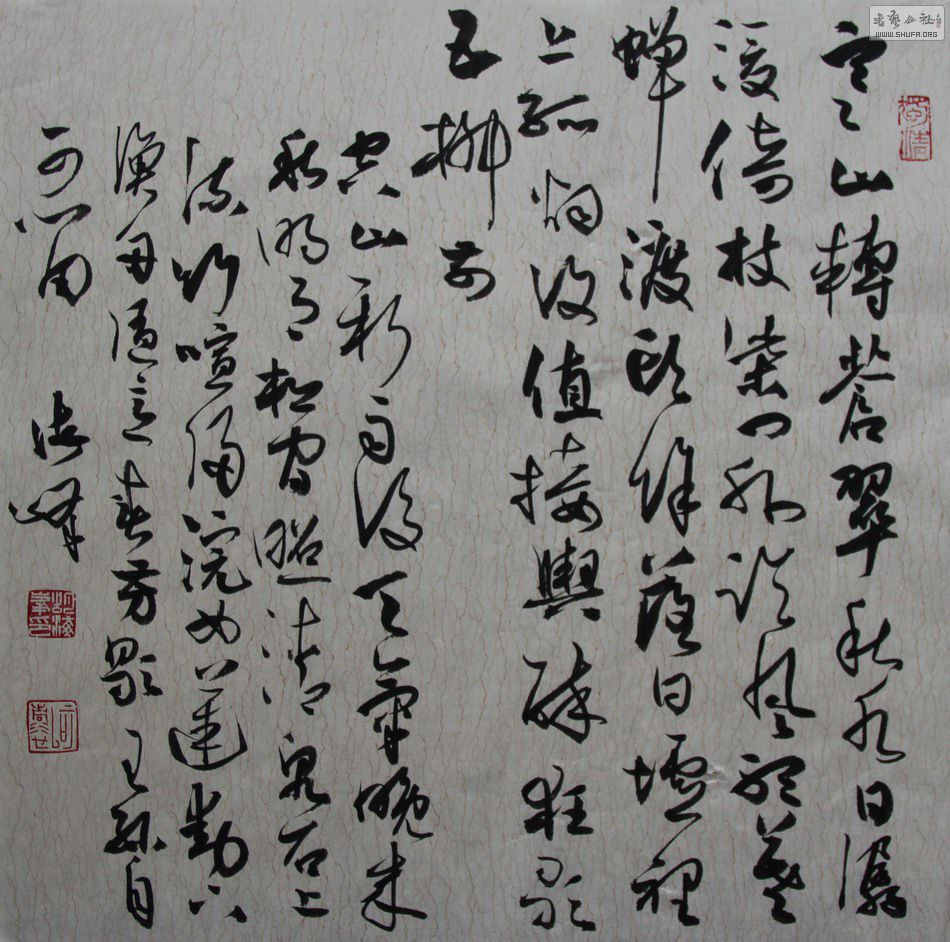 寒山轉蒼翠秋水日潺
湲倚杖柴門外臨風聽暮
蟬渡頭餘落日墟裡
上孤烟復值接輿醉狂歌
五柳前
空山新雨後天氣晚來
秋明月松間照清泉石上
流竹喧歸浣女蓮動下
漁舟隨意春芳歇王孫自
可留 海峰
WWW.SHUFA.ORG